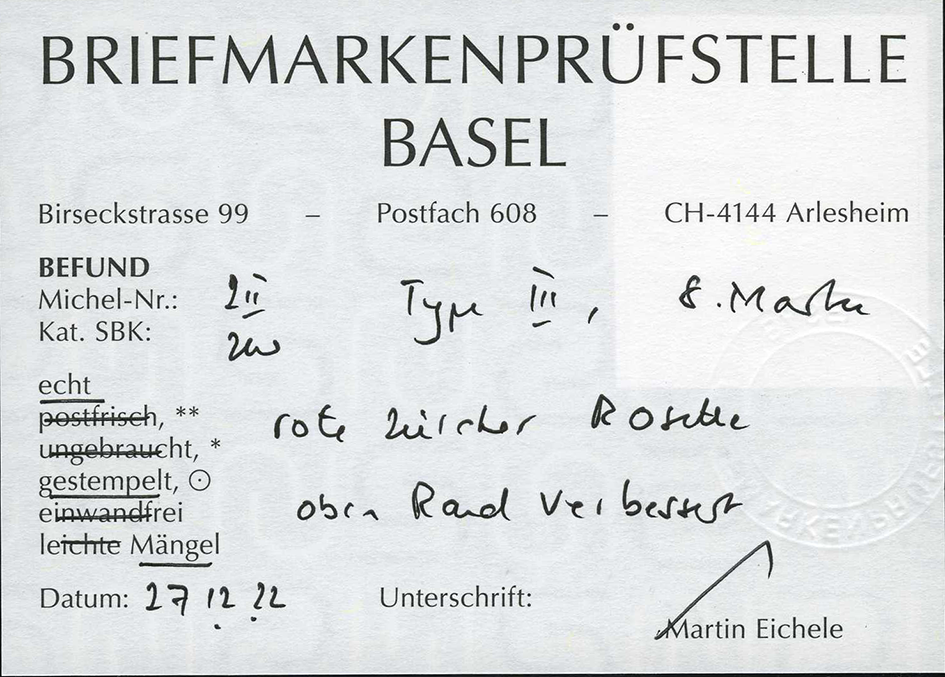 BRIEFMARKENPRÜFSTELLE
BASEL
Birseckstrasse 99 – Postfach 608 – CH-4144 Arlesheim
BEFUND
Michel-Nr.: 2II Type III, 8. Marke
Kat. SBK: 2W
echt
postfrisch, **
ungebraucht, * rote Zürcher Rosette
gestempelt, ⊙
einwandfrei oben Rand verbessert
leichte Mängel
Datum: 27.12.22 Unterschrift:
Martin Eichele